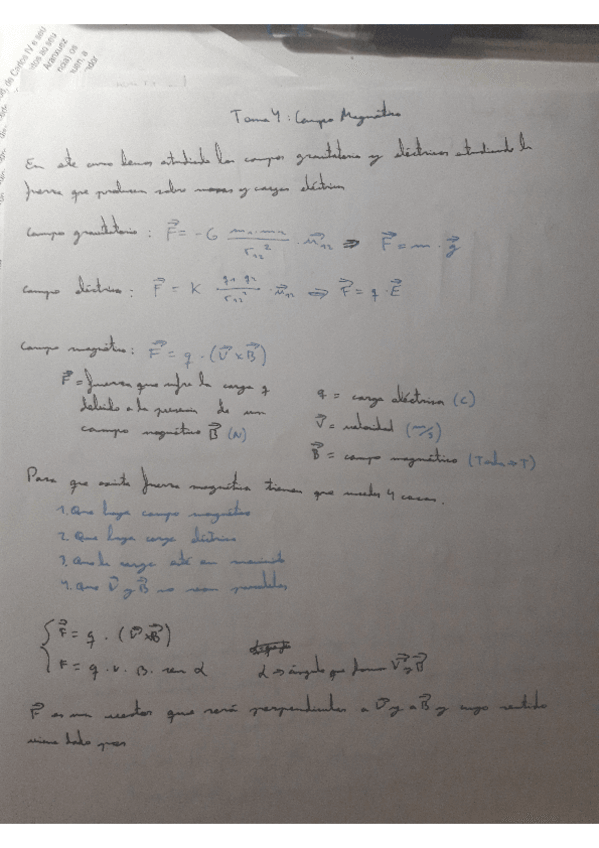 de Carlos IV e seu
Aranxuez
Tema 4: Campo Magnético
En este curso hemos estudiado los campos gravitatorio y eléctrico estudiando la
fuerza que producen sobre masas y cargas eléctricas
Campo gravitatorio: F⃗ = -G m₁·m₂/r₁₂² · u⃗₁₂ ⇒ F⃗ = m · g⃗
Campo eléctrico: F⃗ = K q₁ q₂/r₁₂² · u⃗₁₂ ⇔ F⃗ = q · E⃗
Campo magnético: F⃗ = q · (V⃗ x B⃗)
F⃗ = fuerza que sufre la carga q
debido a la presencia de un
campo magnético B⃗ (N)
q = carga eléctrica (C)
V⃗ = velocidad (m/s)
B⃗ = campo magnético (Tesla ⇒ T)
Para que exista fuerza magnética tienen que suceder 4 cosas.
1. Que haya campo magnético
2. Que haya carga eléctrica
3. Que la carga esté en movimiento
4. Que V⃗ y B⃗ no sean paralelos
F⃗ = q · (V⃗xB⃗)
F = q · v · B · sen α
α → ángulo que forman V⃗ y B⃗
F⃗ es un vector que será perpendicular a V⃗ y a B⃗ y cuyo sentido
viene dado por